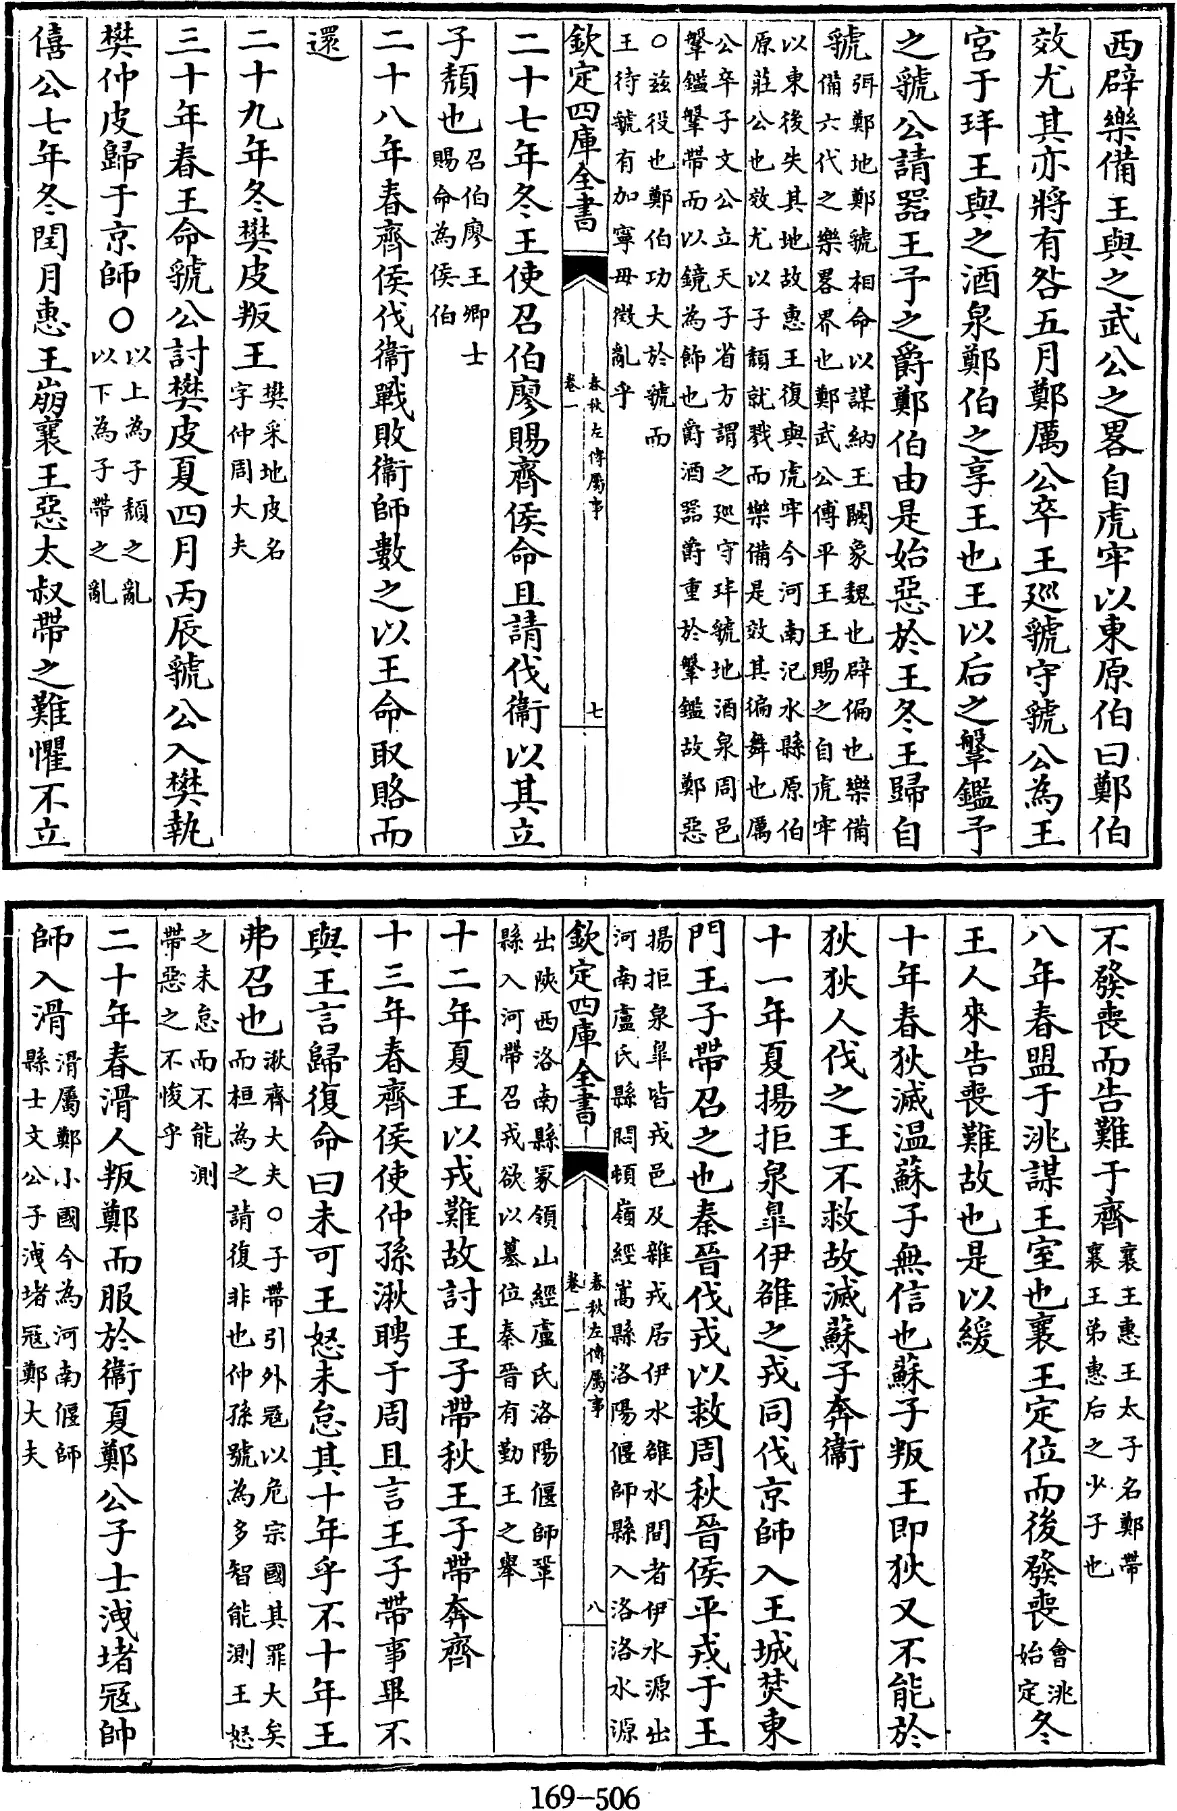 西辟樂備王與之武公之畧自虎牢以東原伯曰鄭伯
效尤其亦將有咎五月鄭厲公卒王廵虢守虢公為王
宮于玤王與之酒泉鄭伯之享王也王以后之鞶鑑予
之虢公請器王予之爵鄭伯由是始惡於王冬王歸自
虢弭鄭地鄭虢相命以謀納王闕象魏也辟偏也樂備
備六代之樂畧界也鄭武公傅平王王賜之自虎牢
以東後失其地故惠王復與虎牢今河南汜水縣原伯
原莊公也效尤以子頽就戮而樂備是效其偏舞也厲
公卒子文公立天子省方謂之廵守玤虢地酒泉周邑
鞶鑑鞶帶而以鏡為飾也爵酒器爵重於鞶鑑故鄭惡
○兹役也鄭伯功大於虢而
王待虢有加寧毋徵亂乎
欽定四庫全書 春秋左傳屬事 卷一 七
二十七年冬王使召伯廖賜齊侯命且請伐衞以其立
子頽也召伯廖王卿士
賜命為侯伯
二十八年春齊侯伐衞戰敗衞師數之以王命取賂而
還
二十九年冬樊皮叛王樊采地皮名
字仲周大夫
三十年春王命虢公討樊皮夏四月丙辰虢公入樊執
樊仲皮歸于京師○以上為子頽之亂
以下為子帶之亂
僖公七年冬閏月惠王崩襄王惡太叔帶之難懼不立
不發喪而告難于齊襄王惠王太子名鄭帶
襄王弟惠后之少子也
八年春盟于洮謀王室也襄王定位而後發喪會洮
始定冬
王人來告喪難故也是以緩
十年春狄滅温蘇子無信也蘇子叛王即狄又不能於
狄狄人伐之王不救故滅蘇子奔衞
十一年夏揚拒泉臯伊雒之戎同伐京師入王城焚東
門王子帶召之也秦晉伐戎以救周秋晉侯平戎于王
揚拒泉臯皆戎邑及雜戎居伊水雒水間者伊水源出
河南盧氏縣悶頓嶺經嵩縣洛陽偃師縣入洛洛水源
欽定四庫全書 春秋左傳屬事 卷一 八
出陝西洛南縣冢領山經盧氏洛陽偃師鞏
縣入河帶召戎欲以簒位秦晉有勤王之舉
十二年夏王以戎難故討王子帶秋王子帶奔齊
十三年春齊侯使仲孫湫聘于周且言王子帶事畢不
與王言歸復命曰未可王怒未怠其十年乎不十年王
弗召也湫齊大夫○子帶引外冦以危宗國其罪大矣
而桓為之請復非也仲孫號為多智能測王怒
之未怠而不能測
帶惡之不悛乎
二十年春滑人叛鄭而服於衞夏鄭公子士洩堵冦帥
師入滑滑屬鄭小國今為河南偃師
縣士文公子洩堵冦鄭大夫
169-506